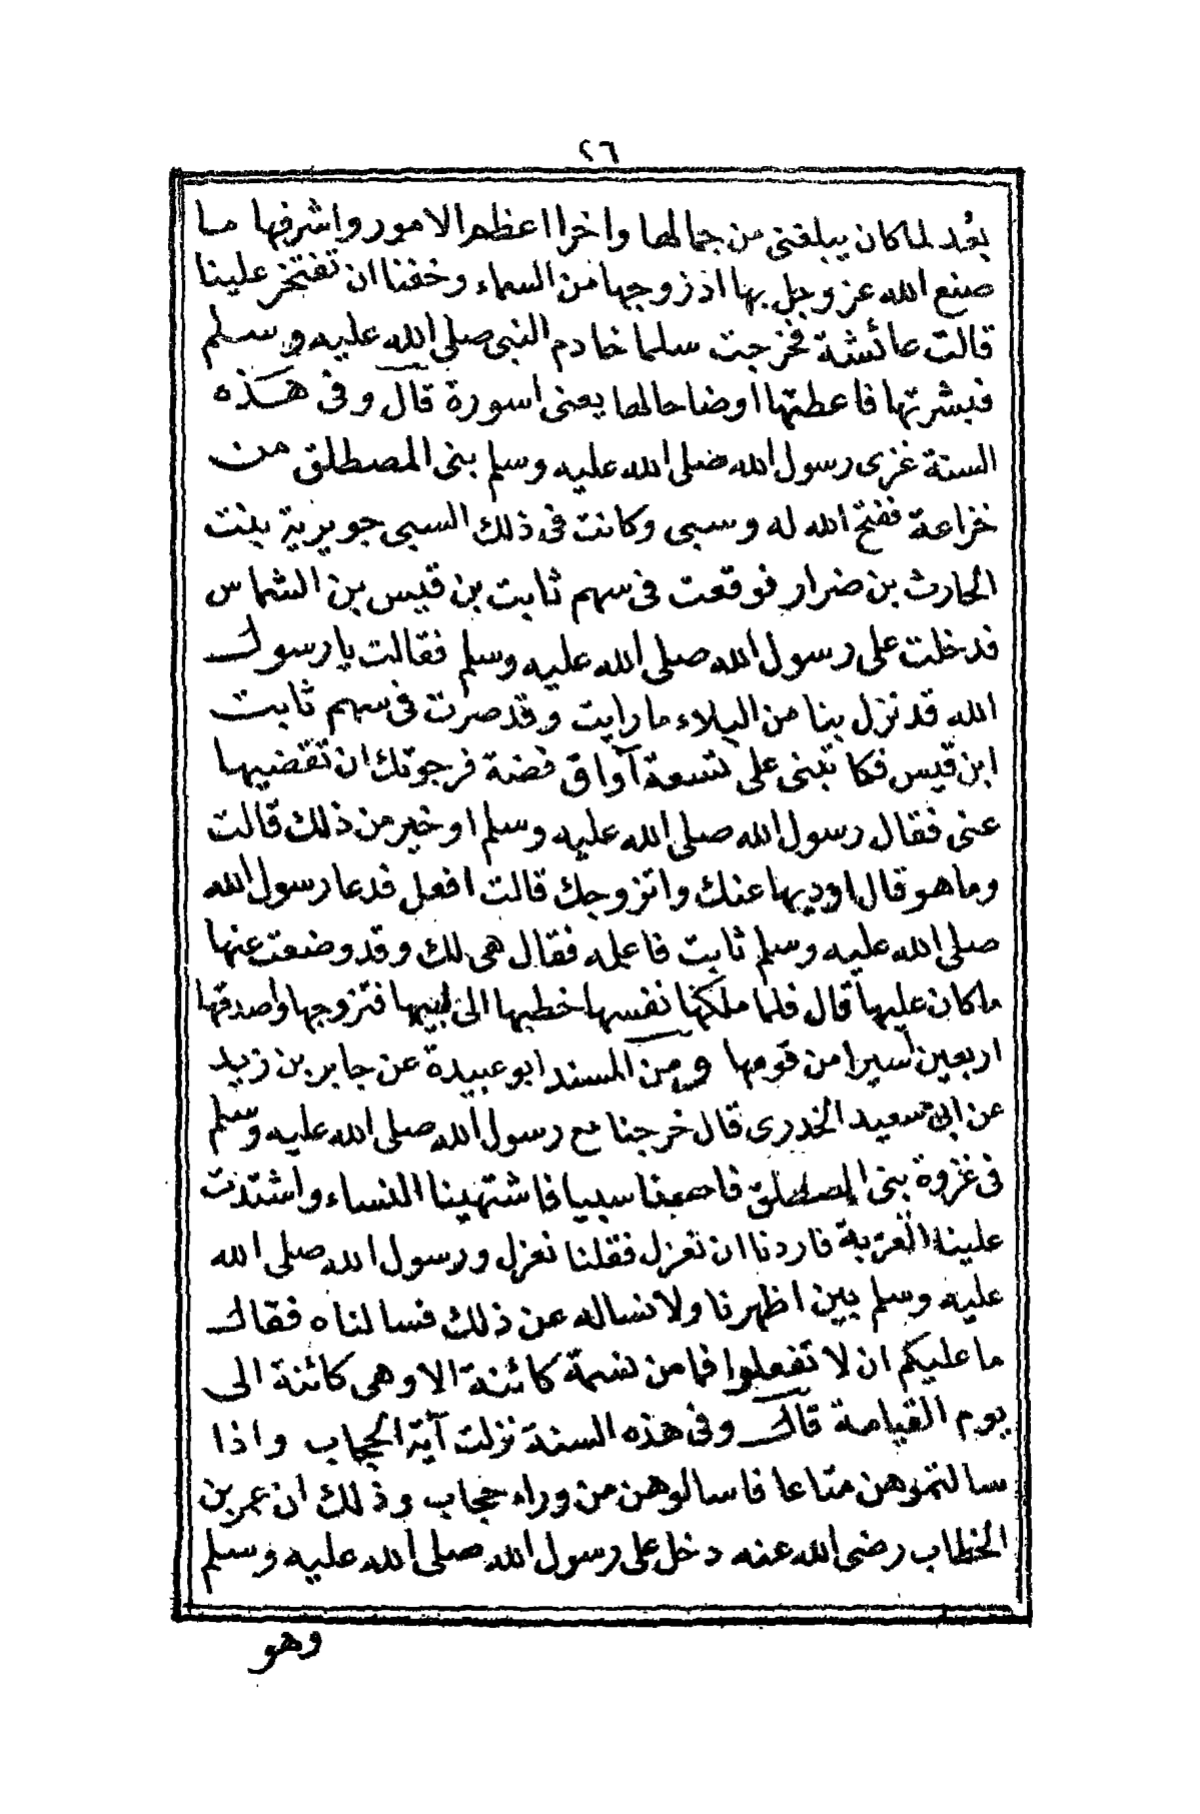 ٢٦
بعُد لما كان يبلغنى من جمالها واخرا اعظم الامور واشرفها ما
صنع الله عز وجل بها اذ زوجها من السماء وخفنا ان تفتخر علينا
قالت عائشة فخرجت سلما خادم النبى صلى الله عليه وسلم
فبشرتها فاعطتها اوضاحا لها يعنى اسورة قال وفى هذه
السنة غزى رسول الله صلى الله عليه وسلم بنى المصطلق من
خزاعة ففتح الله له وسبى وكانت فى ذلك السبى جويرية بنت
الحارث بن ضرار فوقعت فى سهم ثابت بن قيس بن الشماس
فدخلت على رسول الله صلى الله عليه وسلم فقالت يا رسول
الله قد نزل بنا من البلاء ما رايت وقد صرت فى سهم ثابت
ابن قيس فكاتبنى على تسعة آواق فضة فرجوتك ان تقضيها
عنى فقال رسول الله صلى الله عليه وسلم او خير من ذلك قالت
وما هو قال اوديها عنك واتزوجك قالت افعل فدعا رسول الله
صلى الله عليه وسلم ثابت فاعلمه فقال هى لك وقد وضعت عنها
ما كان عليها قال فلما ملكنها نفسها خطبها الى ابيها فتزوجها واصدقها
اربعين اسيرا من قومها ومن المسند ابو عبيدة عن جابر بن زيد
عن ابى سعيد الخدرى قال خرجنا مع رسول الله صلى الله عليه وسلم
فى غزوة بنى المصطلق فاصبنا سبيا فاشتهينا النساء واشتدت
علينا العزبة فاردنا ان نعزل فقلنا نعزل ورسول الله صلى الله
عليه وسلم بين اظهرنا ولا نساله عن ذلك فسالناه فقال
ما عليكم ان لا تفعلوا فما من نسمة كائنة الا وهى كائنة الى
يوم القيامة قال وفى هذه السنة نزلت آية الحجاب واذا
سالتموهن متاعا فاسالوهن من وراء حجاب وذلك ان عمر بن
الخطاب رضى الله عنه دخل على رسول الله صلى الله عليه وسلم
وهو